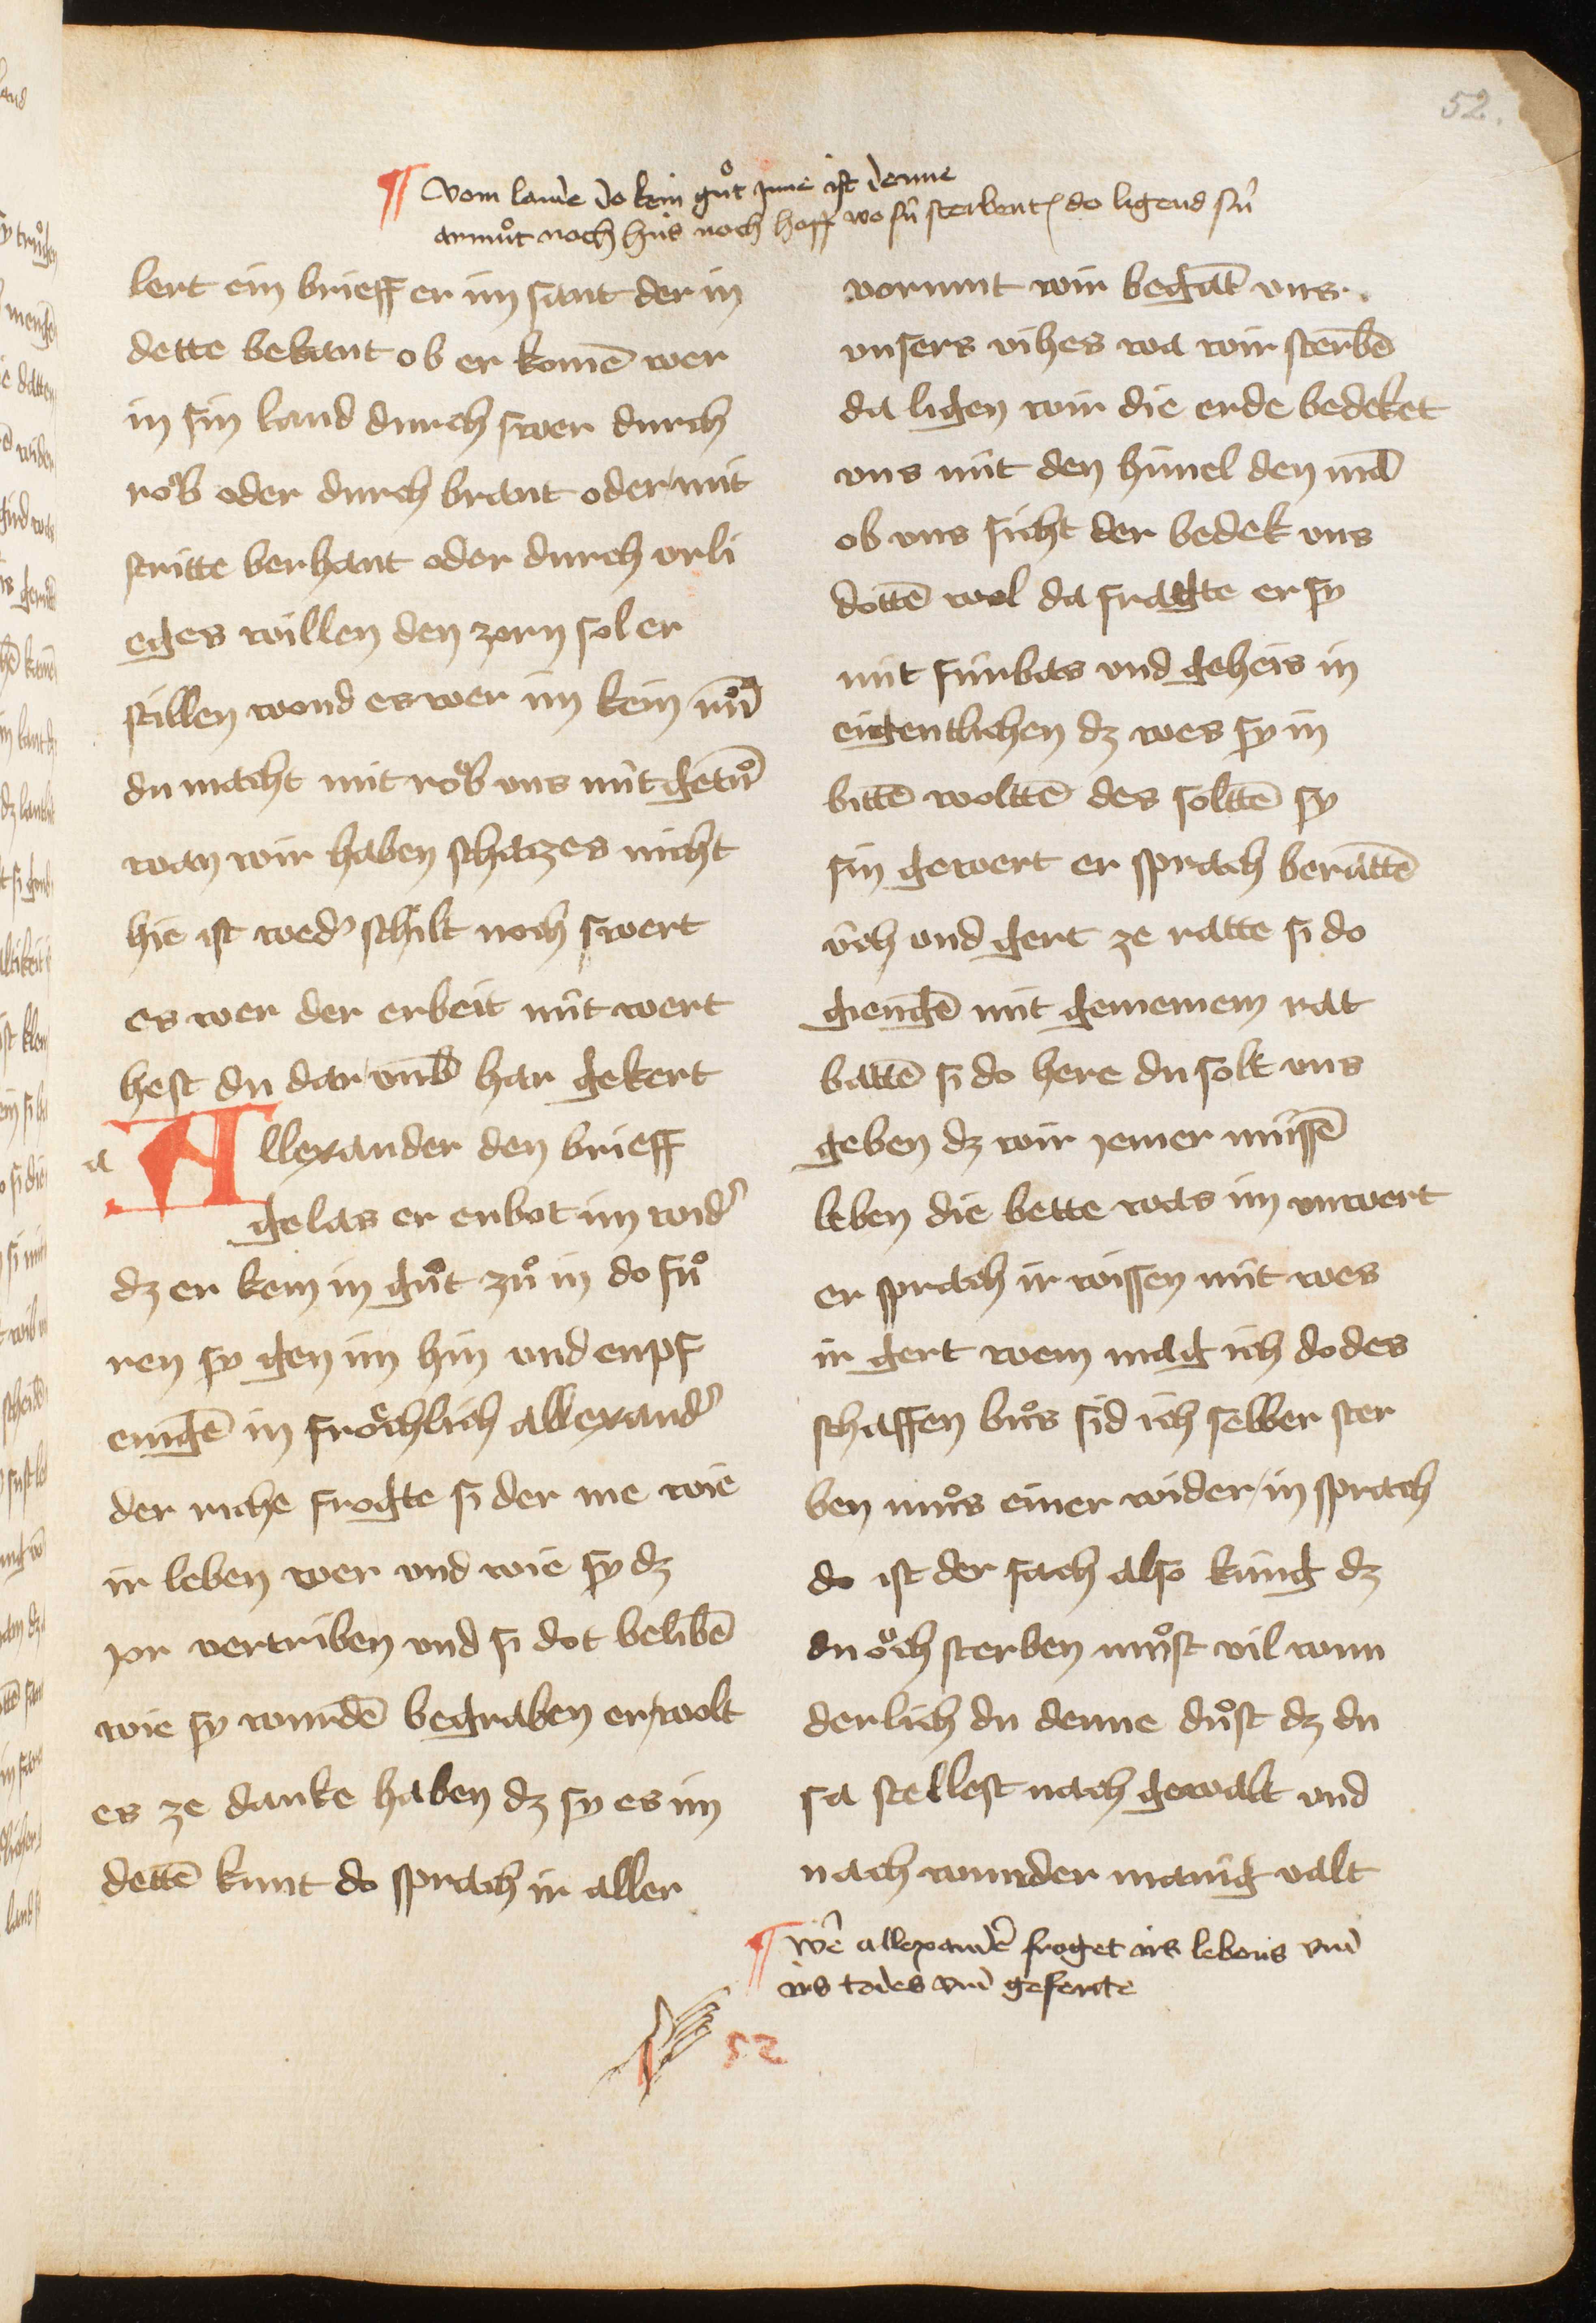 52.
¶ Vom lande do kein guͦt jnne ist denne
armuͦt noch hus noch hoff wo sù sterbent do ligend sù
lert ein brieff er im sant der in
dette bekant ob er komē wer
in sin land durch swer durch
roͮb oder durch brant oder mit
stritte verhant oder durch vrli
eges willen den zorn sol er
stillen wond es wer im kein
du macht mit roͮb vns nùt getuͦ
wan wir haben schatzes nicht
hie ist wedʼ schilt noch swert
es wer der erbeit nùt wert
hest du dar vmb har gekert
a
Allexander den brieff
gelas er enbot im widʼ
dz er kem in guͦt zuͦ in do fuͦ
ren sy gen im hin vnd enpf
engē in froͤchlich allexandʼ
der riche frogte si der me wie
ir leben wer vnd wie sy dz
jor vertriben vnd si dot belibē
wie sy wurdē begraben er wolt
es ze danke haben dz sy es im
dettē kunt do sprach ir aller
vormùt wir begāt vns
vnsers vihes wa wir sterbē
da ligen wir die erde bedeket
vns mit den himel den mā
ob vns sicht der bedek vns
dottē wol da fragte er sy
mit fùrbas vnd geheis in
eigentlichen dz wes sy in
bittē wolttē des solttē sy
sin gewert er sprach berattē
ùch vnd gert ze ratte si do
giengē mit gemeinem rat
battē si do here du solt vns
geben dz wir jemer mùssē
leben die bette was im vnwert
er sprach ir wissen nùt wes
ir gert wem mag ich dodes
schaffen buͦs sid ich selber ster
ben muͦs einer wider in sprach
do ist der sach also kùng dz
du oͮch sterben muͦst vil wun
derlich du denne duͦst dz du
sa stellest nach gewalt vnd
nach wunder manig valt
¶ wē allexandē froget irs lebens vn̄
irs todes vn̄ geferte
52